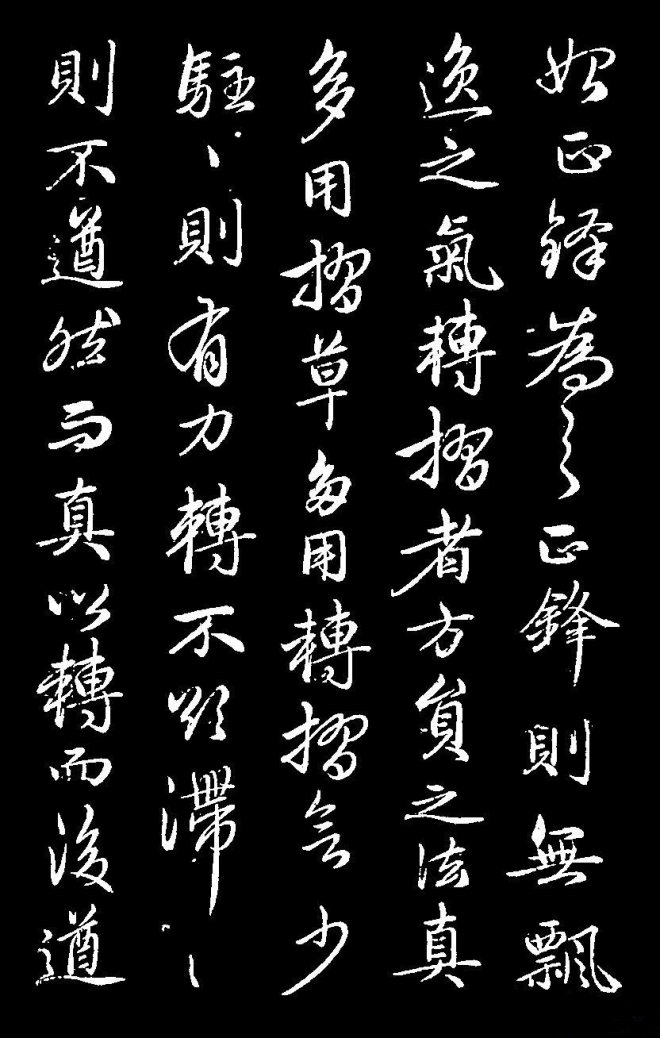 始正鋒為之正鋒則無飄
逸之氣轉摺者方員之法真
多用摺草多用轉摺欲少
駐丶則有力轉不欲滯丶
則不遒然而真以轉而後遒